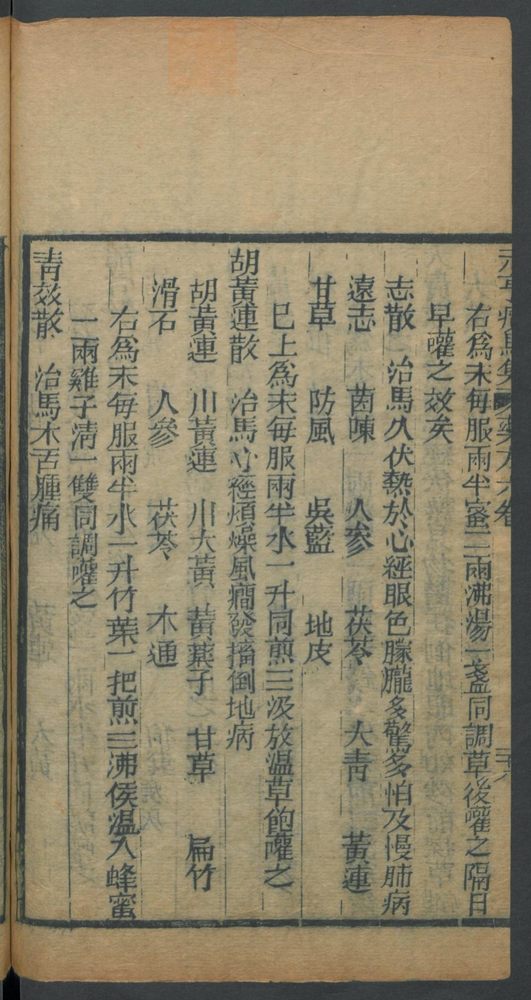 元亨療馬集 藥方六卷
右爲末每服兩半蜜二兩沸湯一盞同調草後嚾之隔日
早嚾之效矣
志散 治馬久伏熱於心經眼色朦朧多驚多怕及慢肺病
遠志 茵蔯 人參 茯苓 大青 黃連
甘草 防風 吳藍 地皮
已上爲末每服兩半水一升同煎三汲放温草飽嚾之
胡黃連散 治馬心經煩燥風癎發搐倒地病
胡黃連 川黃連 川大黃 黃藥子 甘草 扁竹
滑石 人參 茯苓 木通
右爲末每服兩半水一升竹葉一把煎三沸侯温入蜂蜜
一兩雞子清一雙同調嚾之
青效散 治馬木舌腫痛